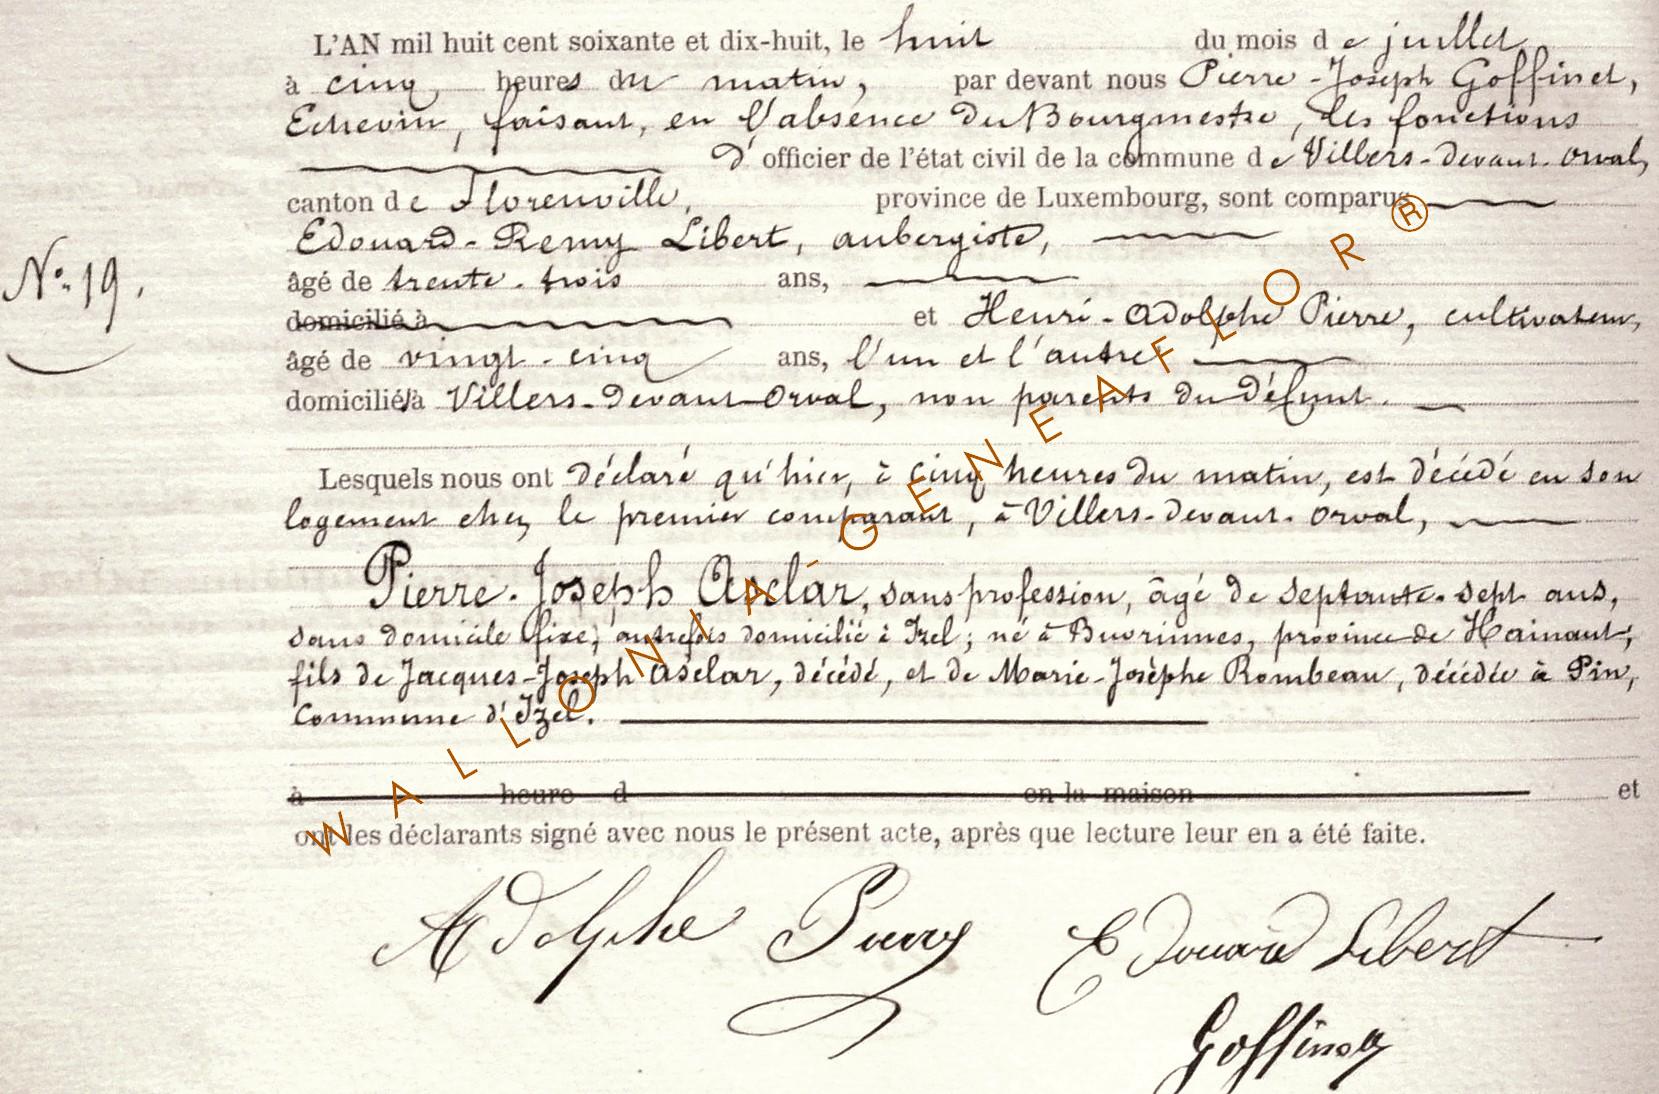 L'AN mil huit cent soixante et dix-huit, le huit du mois de juillet,
à cinq heures du matin, par devant nous Pierre-Joseph Goffinet,
Echevin, faisant, en l'absence du Bourgmestre, les fonctions
d'officier de l'état civil de la commune de Villers-devant-Orval,
canton de Florenville, province de Luxembourg, sont comparus
Edouard-Remy Libert, aubergiste,
N° 19.
âgé de trente-trois ans,
domicilié à et Henri-Adolphe Pierre, cultivateur,
âgé de vingt-cinq ans, l'un et l'autre
domiciliés à Villers-devant-Orval, non parents du défunt.
Lesquels nous ont déclaré qu'hier, à cinq heures du matin, est décédé en son
logement chez le premier comparant, à Villers-devant-Orval,
Pierre-Joseph Asclar, sans profession, âgé de septante-sept ans,
sans domicile fixe, autrefois domicilié à Izel; né à Buvrinnes, province de Hainaut,
fils de Jacques-Joseph Asclar, décédé, et de Marie-Josèphe Rombeau, décédée à Pin,
Commune d'Izel.
à heure d en la maison et
ont les déclarants signé avec nous le présent acte, après que lecture leur en a été faite.
Adolphe Pierre Edouard Libert
Goffinet
WALLONIA-GENEAFLOR ®